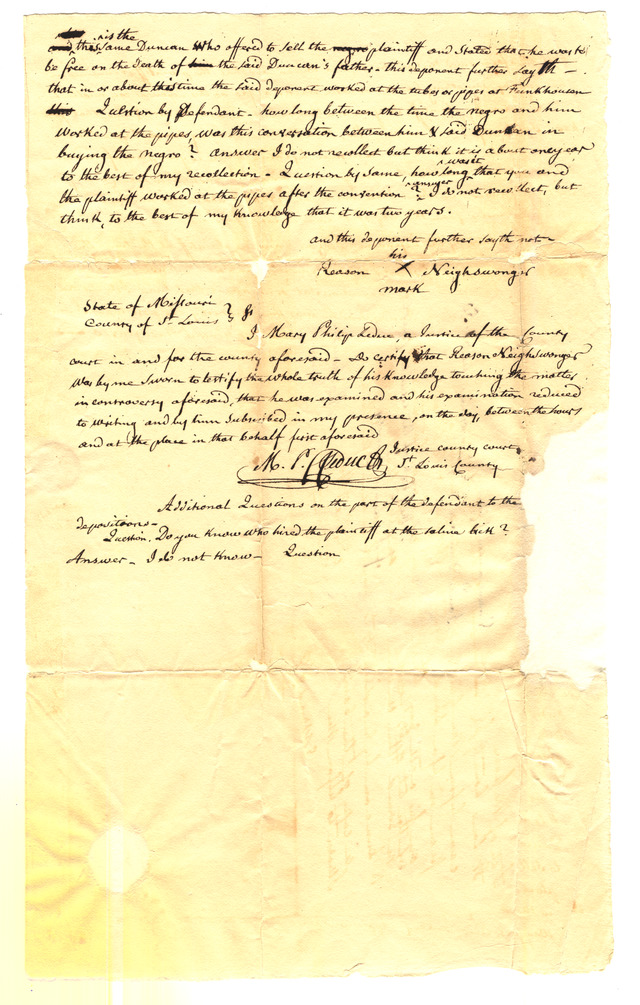 is the
and this same Duncan who offered to sell the negro plaintiff and stated that he was to
be free on the death of him the said Duncan's father - this deponent further sayth -
that in or about this time the said deponent worked at the tubes or pipes at Funkhouson
this Question by Defendant - how long between the time the negro and him
worked at the pipes, was this conversation between him & said Duncan in
buying the negro? answer I do not recollect but think it is about one year
to the best of my recollection - Question by same, how long was it that you and
the plaintiff worked at the pipes after the convention? answer I do not recollect, but
think, to the best of my knowledge that it was two years.
and this deponent further sayth not -
his
Reason X Neighswonger
mark
State of Missouri
County of St Louis } &
I Mary Philip Leduc, a Justice of the County
court in and for the county aforesaid - Do certify that Reason Neighswonger
was by me sworn to testify the whole truth of his knowledge touching the matter
in controversy aforesaid, that he was examined and his examination reduced
to writing and by him subscribed in my presence, on the day, between the hours
and at the place in that behalf first aforesaid
M. P. Leduc Justice county court
St Louis County
Additional Questions on the part of the defendant to the
depositions -
Question. Do you know who hired the plaintiff at the saline lick?
Answer - I do not know - Question